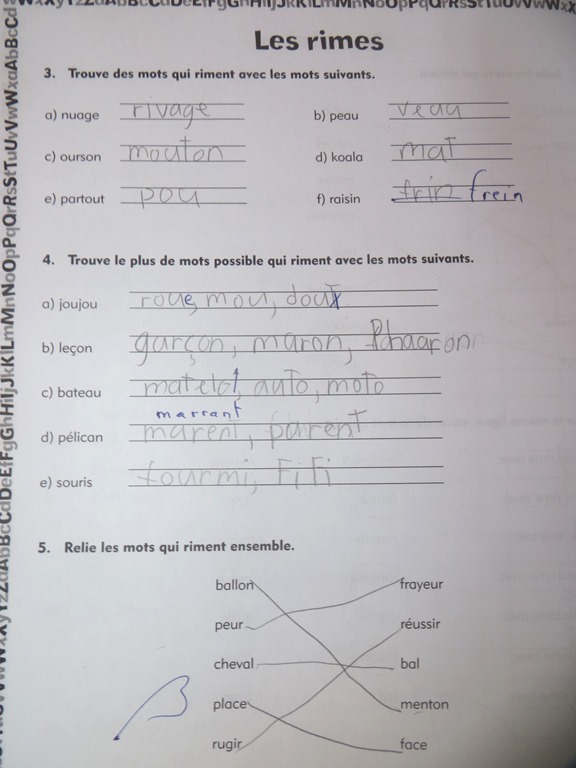 WwXxYyZzAaBbCcDdEeFfGgHhIiJjKkLlMmNnOoPpQqRrSsTtUuVvWwXx
Les rimes
3. Trouve des mots qui riment avec les mots suivants.
a) nuage rivage b) peau veau
c) ourson mouton d) koala mat
e) partout pou f) raisin frin frein
4. Trouve le plus de mots possible qui riment avec les mots suivants.
a) joujou roue, mou, doux
b) leçon garçon, maron,
c) bateau matelot, auto, moto
marrant
d) pélican marent, parent
e) souris fourmi, Fifi
5. Relie les mots qui riment ensemble.
ballon frayeur
peur réussir
cheval bal
place menton
rugir face